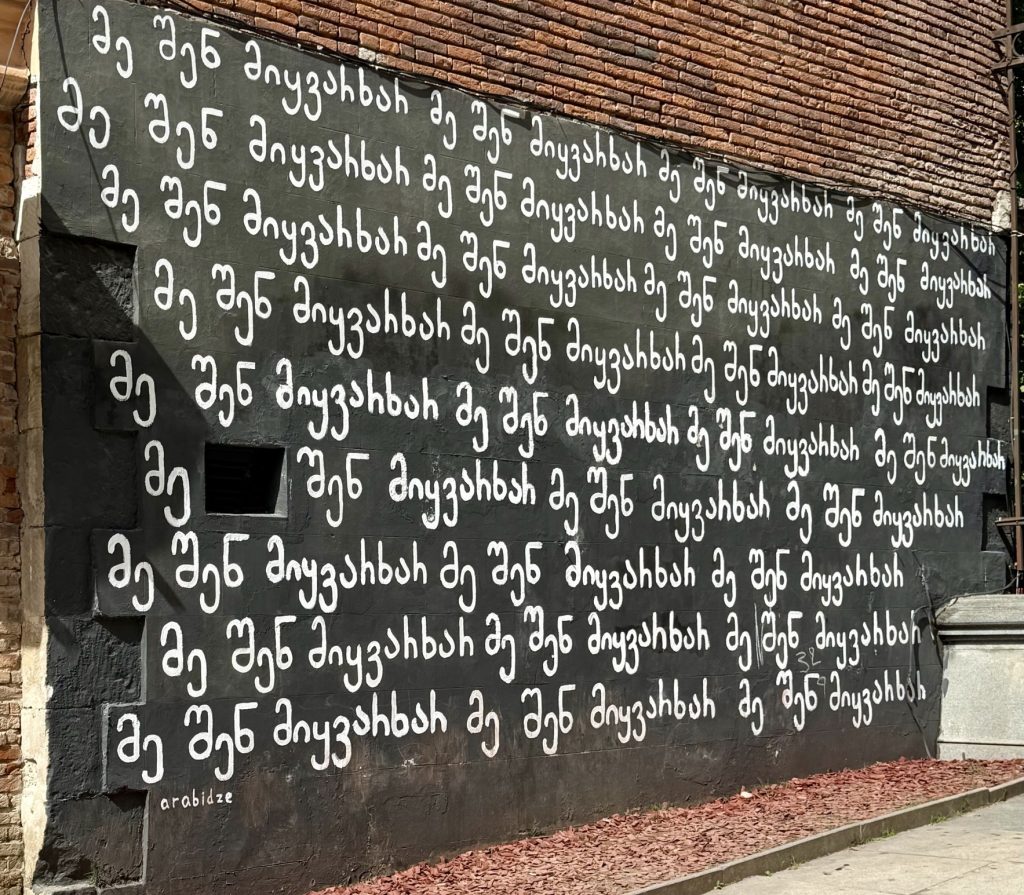 მე შენ მიყვარხარ მე შენ მიყვარხარ მე შენ მიყვარხარ მე შენ მიყვარხარ
მე შენ მიყვარხარ მე შენ მიყვარხარ მე შენ მიყვარხარ მე შენ მიყვარხარ
მე შენ მიყვარხარ მე შენ მიყვარხარ მე შენ მიყვარხარ მე შენ მიყვარხარ
მე შენ მიყვარხარ მე შენ მიყვარხარ მე შენ მიყვარხარ მე შენ მიყვარხარ
მე შენ მიყვარხარ მე შენ მიყვარხარ მე შენ მიყვარხარ მე შენ მიყვარხარ
მე შენ მიყვარხარ მე შენ მიყვარხარ მე შენ მიყვარხარ
მე შენ მიყვარხარ მე შენ მიყვარხარ მე შენ მიყვარხარ
მე შენ მიყვარხარ მე შენ მიყვარხარ მე შენ მიყვარხარ
მე შენ მიყვარხარ მე შენ მიყვარხარ მე შენ მიყვარხარ
arabidze